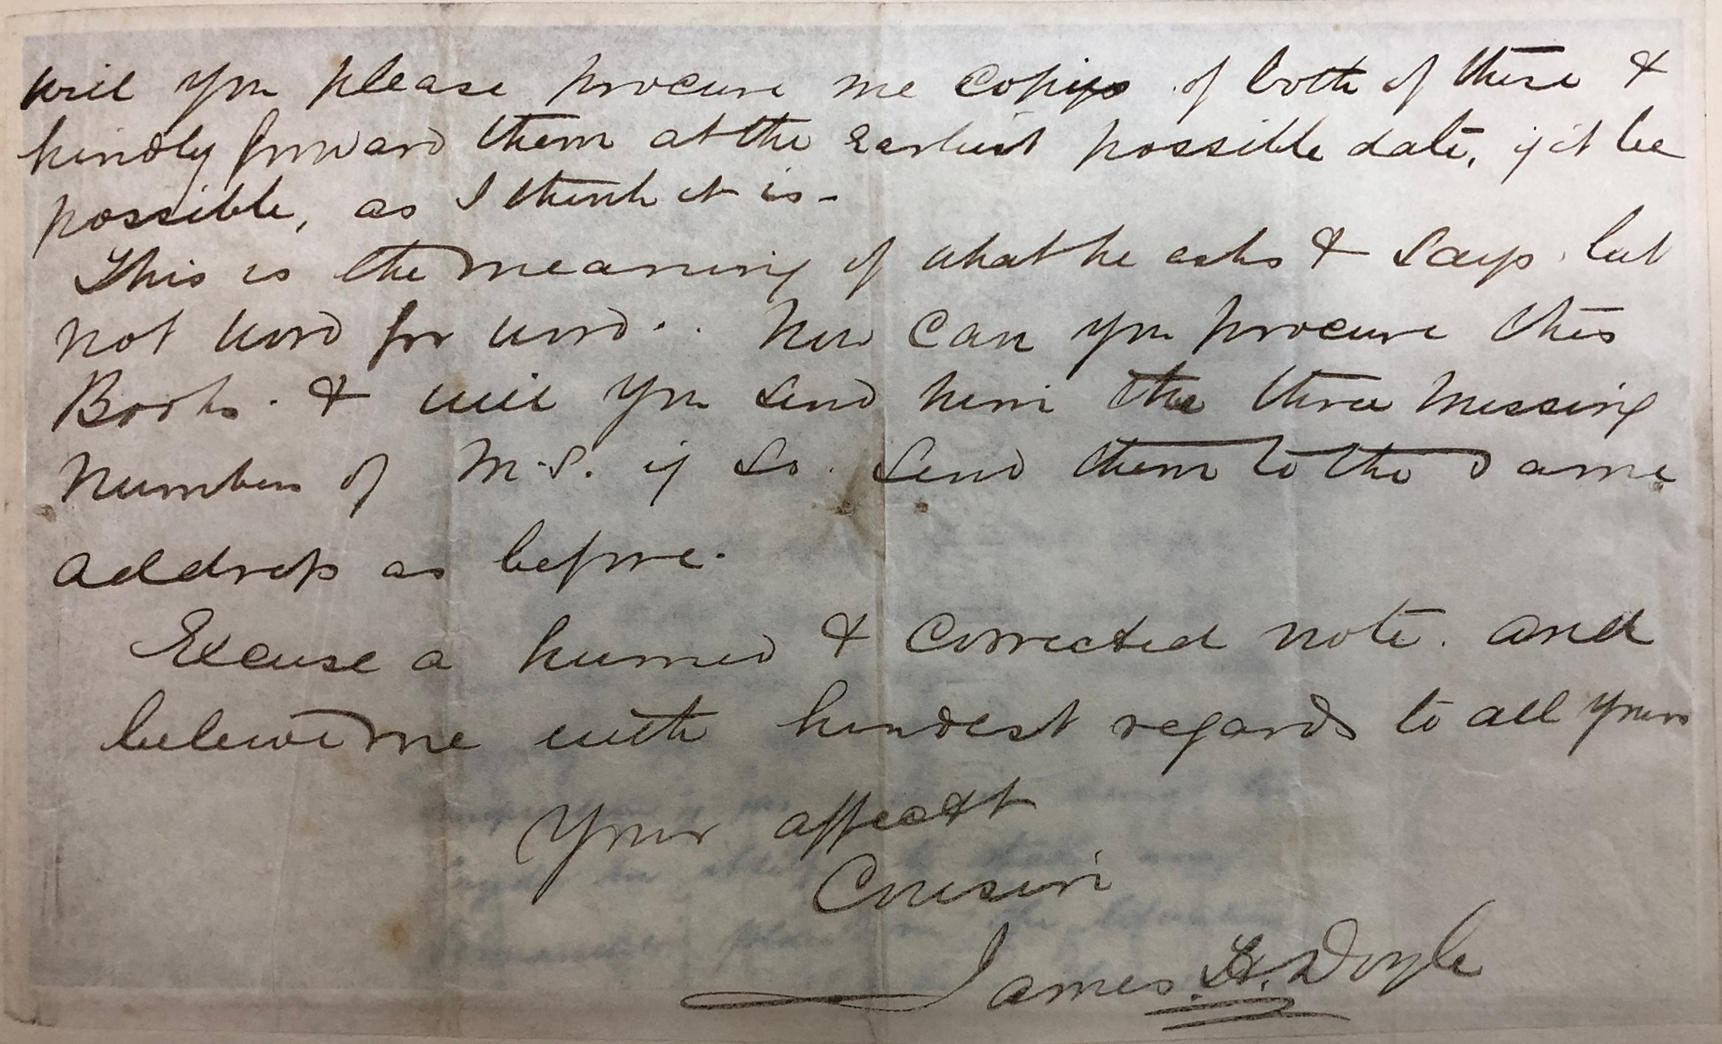 will you please procure me copies of both of these &
kindly forward them at the earliest possible date, if it be
possible, as I think it is -
This is the meaning of what he asks & says but
not word for word. Now can you procure this
Books. & will you send him the three missing
numbers of M.S. if so. send them to the same
address as before.
Excuse a hurried & corrected note. and
believe me with kindest regards to all yours
Your affect
Cousin
James. H. Doyle